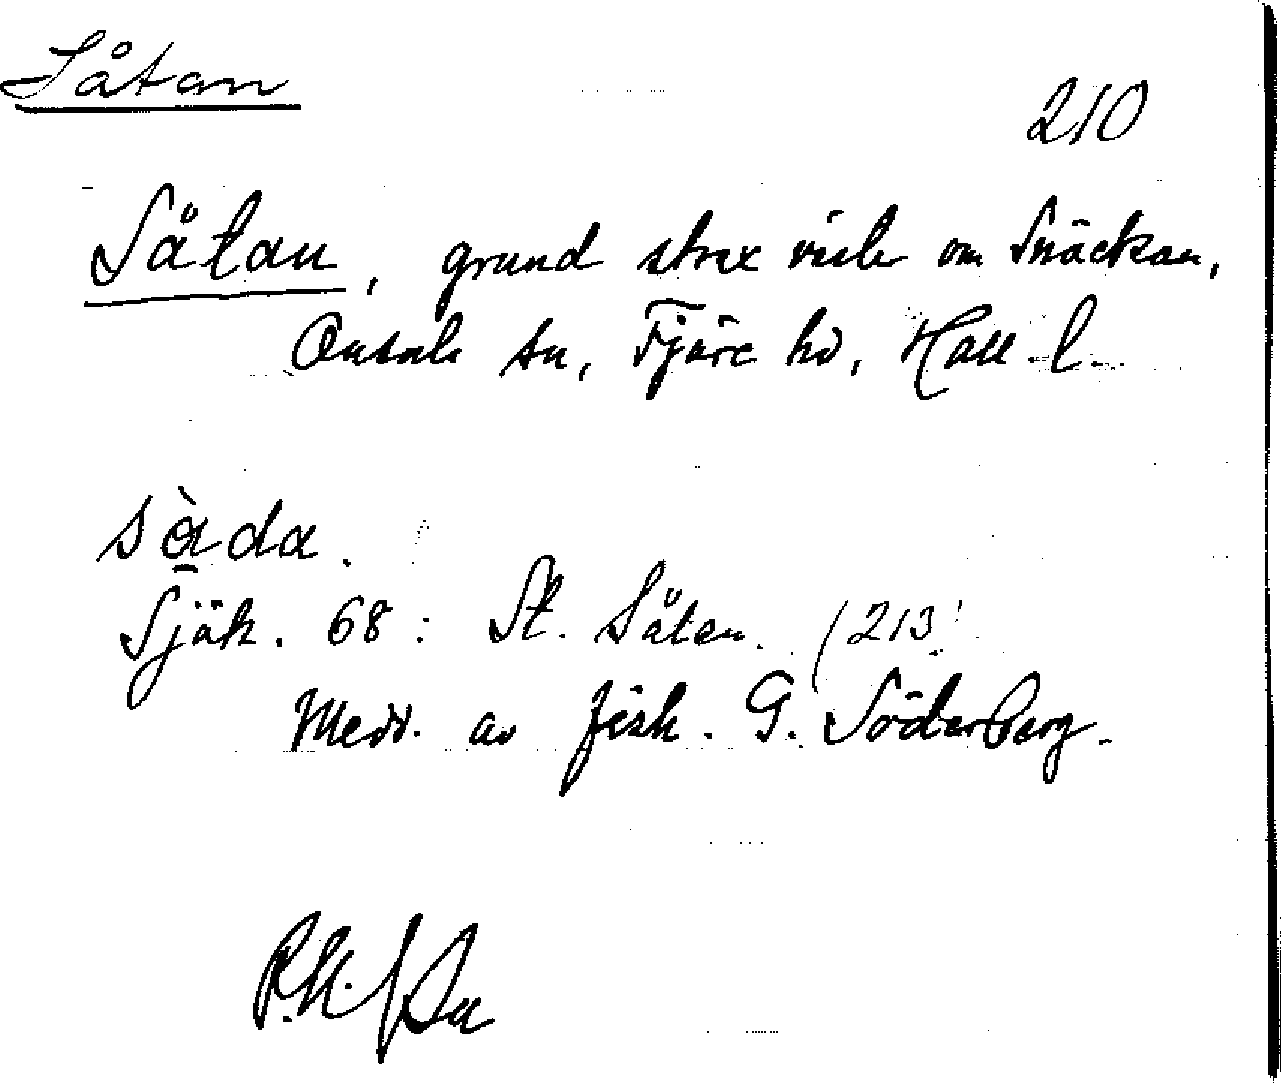 Såtan
210
Såtan, grund strax väster om Snäckan,
Onsala sn, Fjäre hd, Hall. l.
sàda.
Sjök. 68: St. Såten. (213)
Medd. av fisk. G. Söderberg.